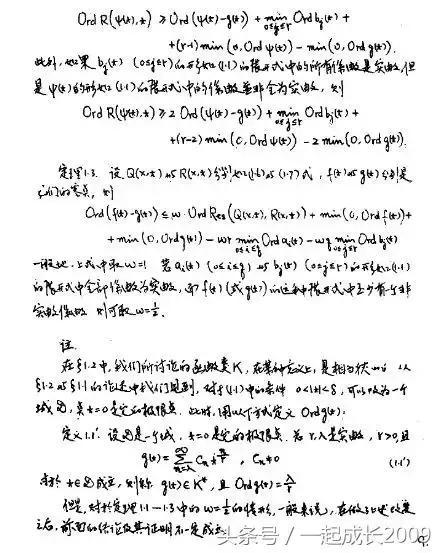 Ord R(ψ(t),t) ≥ Ord(ψ(t)-g(t)) + min_{0≤j≤r} Ord b_j(t) +
+(r-1) min(0, Ord ψ(t)) - min(0, Ord g(t)).
此外, 如果 b_j(t) (0≤j≤r) 的形如(1.1)的展开式中的所有系数是实数, 但
是 ψ(t)的形如(1.1)的展开式中的系数并非全为实数, 则
Ord R(ψ(t),t) ≥ 2 Ord(ψ(t)-g(t)) + min_{0≤j≤r} Ord b_j(t) +
+(r-2) min(0, Ord ψ(t)) - 2 min(0, Ord g(t)).
定理1.3. 设 Q(x,t) 与 R(x,t) 分别如(1.6)与(1.7)式, f(t)与g(t)分别是
它们的零点, 则
Ord(f(t)-g(t)) ≤ w Ord Res(Q(x,t), R(x,t)) + min(0, Ord f(t)) +
+ min(0, Ord g(t)) - wr min_{0≤i≤q} Ord a_i(t) - wq min_{0≤j≤r} Ord b_j(t)
一般地, 上式中取 w=1. 若 a_i(t) (0≤i≤q) 与 b_j(t) (0≤j≤r) 的形如(1.1)
的展开式中全部系数为实数, 而 f(t) (或 g(t)) 的这种展开式中至少有一个非
实数系数, 则可取 w=½.
注.
在§1.2中, 我们所讨论的函数类 K, 在某种意义上, 是相当狭
§1.2与§1.1的论述中我们见到, 对于(1.1)中的条件 0<|t|<δ, 可以改为一个
域 D, 点 t=0是它的极限点. 此时, 用以下方式定义 Ord g(t):
定义1.1'. 设 D是一个域, t=0是它的极限点. 若 r, λ是实数, r>0, 且
g(t) = ∑_{n=λ}^{∞} C_n t^{n/r}, C_λ≠0 (1.1')
对于 t∈D成立, 则称 g(t)∈K*, 且 Ord g(t)=λ/r
但是, 对于定理1.1-1.3中的 w=½的情形, 一般来说, 在做了上述改变
之后, 前面的结论及其证明不一定成立.
9.
头条号 / 一起成长2009